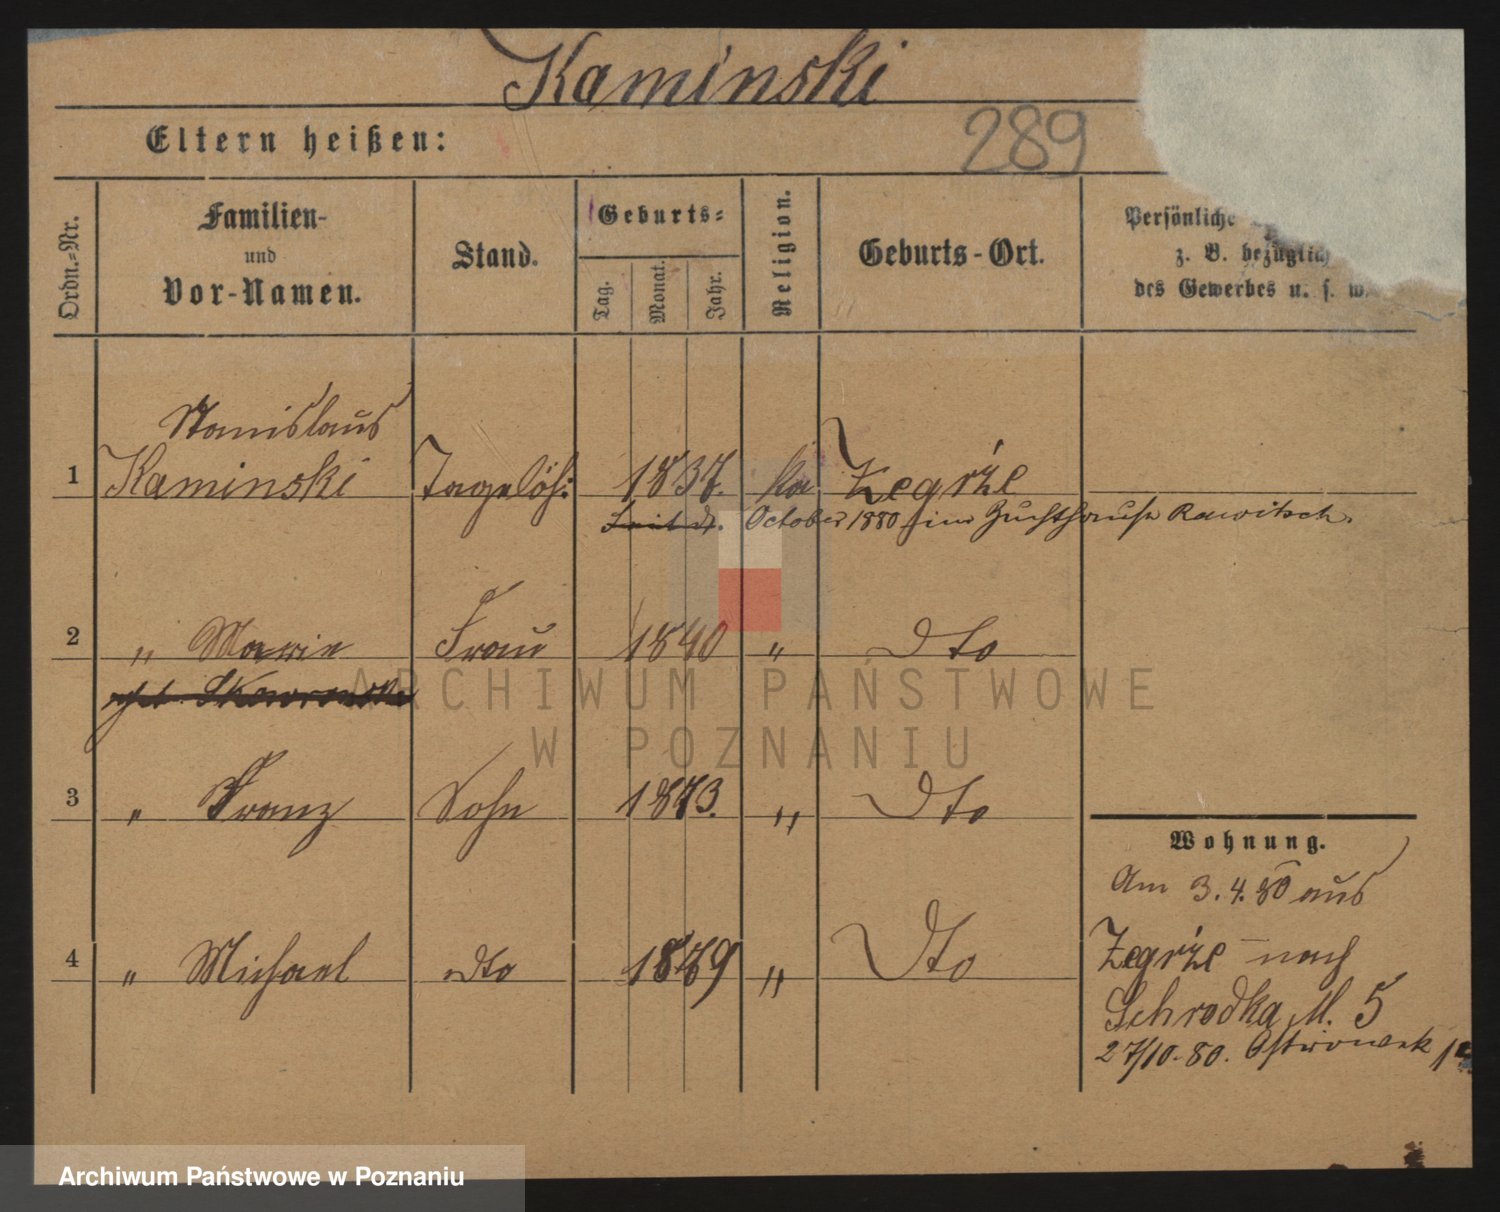 Kaminski
289
Eltern heißen:
Ordn.-Nr.
Familien-
und
Vor-Namen.
Stand.
Geburts-
Tag.
Monat.
Jahr.
Religion.
Geburts-Ort.
Persönliche
z. B. bezüglich
des Gewerbes u. s. w.
Stanislaus
1 Kaminski Tagelöh: 1837. ka Zegrże
Seit d. October 1880 im Zuchthause Rawitsch.
2 " Marie Frau 1840 " Dto
geb. Skowronska
3 " Franz Sohn 1873. " Dto
4 " Michael dto 1879 " Dto
Wohnung.
Am 3.4.80 aus
Zegrże nach
Schrodka M. 5
27/10.80. Ostrowek
ARCHIWUM PAŃSTWOWE
W POZNANIU
Archiwum Państwowe w Poznaniu